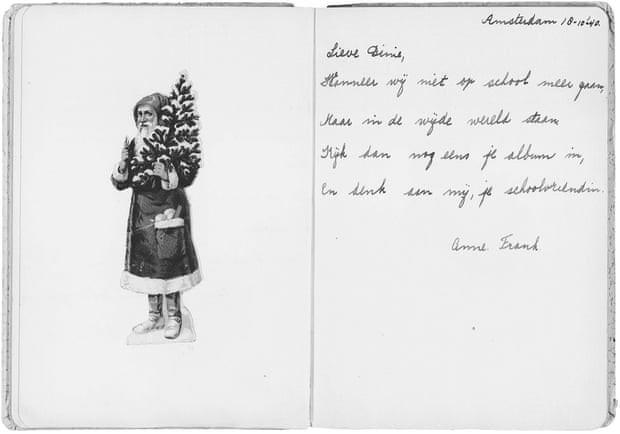 Amsterdam 18-10-'40.
Lieve Dinie,
Wanneer wij niet op school meer gaan,
Maar in de wijde wereld staan
Kijk dan nog eens je album in,
En denk aan mij, je schoolvriendin.
Anne Frank.